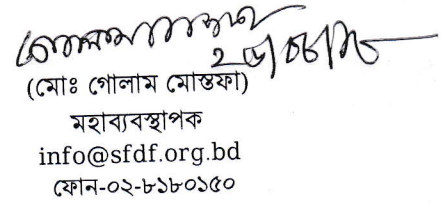 (মোঃ গোলাম মোস্তফা)
মহাব্যবস্থাপক
info@sfdf.org.bd
ফোন-০২-৮১৮০১৫০